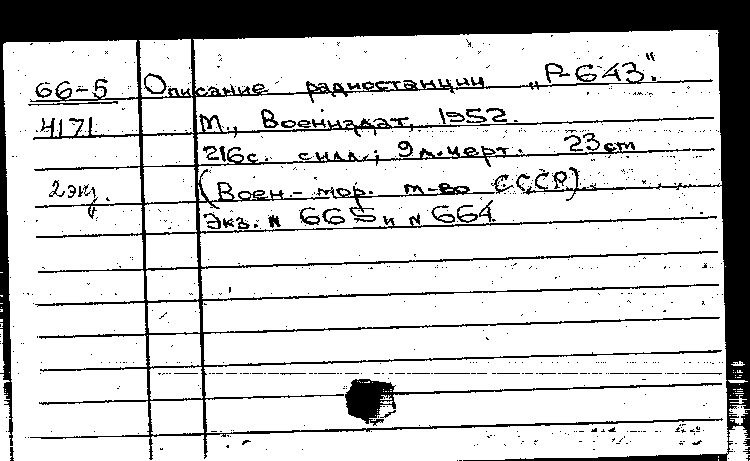 66-5 Описание радиостанции „Р-643".
4171 М., Воениздат, 1952.
216с. с илл.; 9 л. черт. 23 cm
2 экз. (Воен.-мор. м-во СССР).
Экз. № 665 и № 664